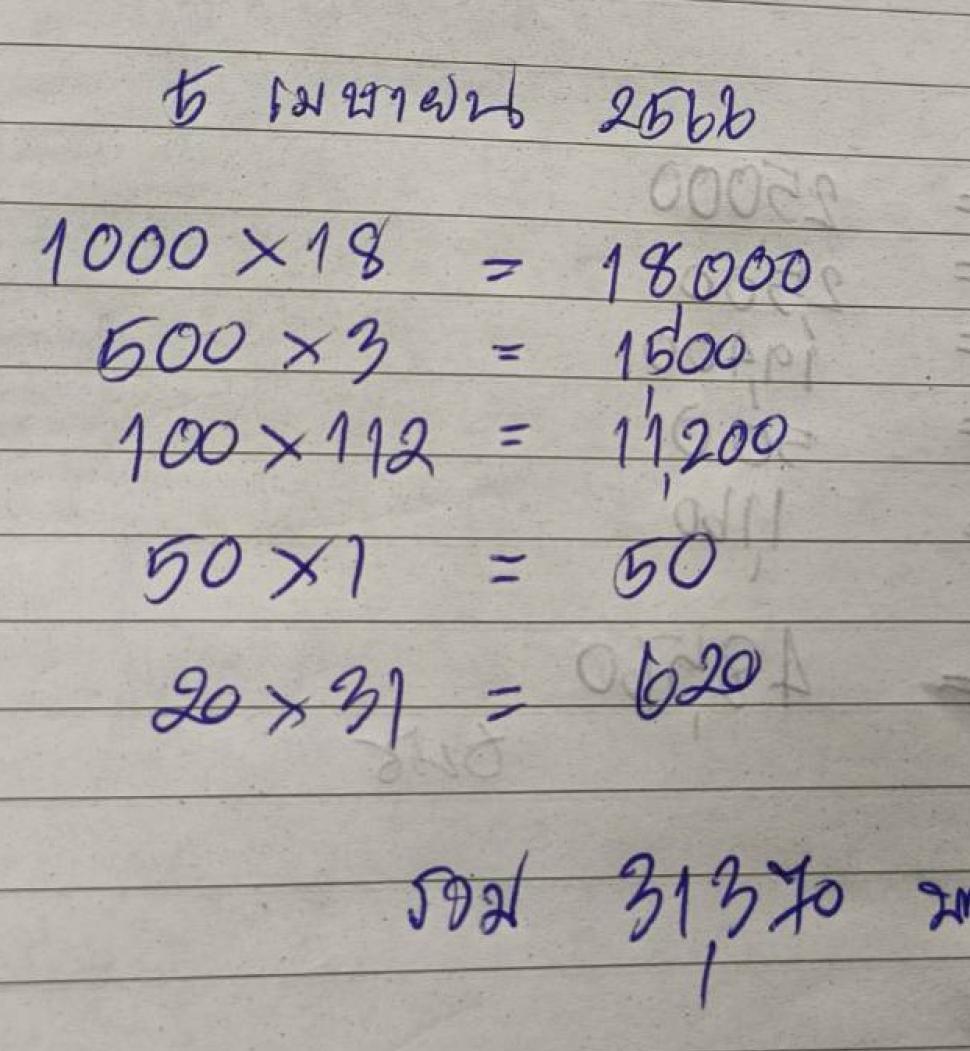 5 เมษายน 2566
1000 × 18 = 18,000
500 × 3 = 1,500
100 × 112 = 11,200
50 × 1 = 50
20 × 31 = 620
รวม 31,370